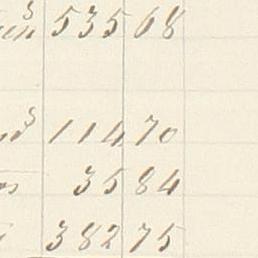 535 68
114 70
35 84
382 75